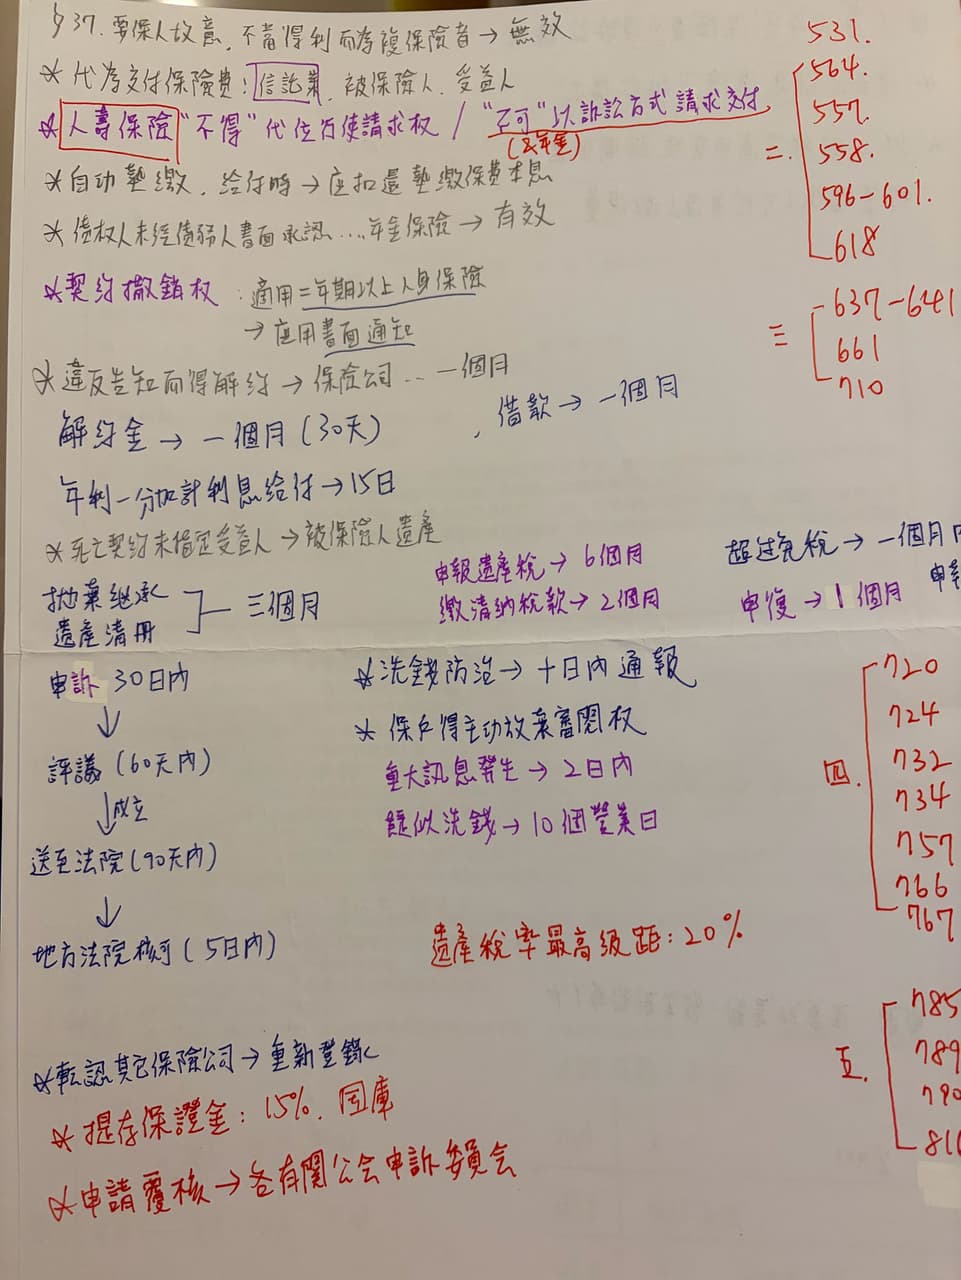 §37. 要保人故意,不當得利而為複保險者→無效
☆代為交付保險費:信託業,被保險人.受益人
☆人壽保險"不得"代位行使請求權/"不可"以訴訟方式請求交付
(及年金)
☆自動墊繳,給付時→應扣還墊繳保費本息
☆債權人未經債務人書面承認....年金保險→有效
☆契約撤銷權:適用二年期以上人身保險
→應用書面通知
☆違反告知而得解約→保險公司...一個月
解約金→一個月(30天),借款→一個月
年利一分加計利息給付→15日
☆死亡契約未指定受益人→被保險人遺產
拋棄繼承
遺產清冊
三個月
申報遺產稅→6個月
繳清納稅款→2個月
超過免稅→一個月內
申復→1個月
申訴 30日內
↓
評議(60天內)
↓成立
送至法院(90天內)
↓
地方法院核可(5日內)
☆洗錢防治→十日內通報
☆保戶得主動放棄審閱權
重大訊息發生→2日內
疑似洗錢→10個營業日
遺產稅率最高級距:20%
☆轉認其它保險公司→重新登錄
☆提存保證金:15%.國庫
☆申請覆核→各有關公會申訴委員會
531.
二.
564.
557.
558.
596-601.
618
三
637-641
661
710
四.
720
724
732
734
757
766
767
五.
785
789
790